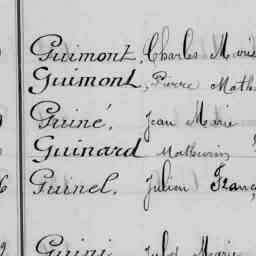 Guimont, Charles Marie
Guimont, Pierre Math
Guiné. Jean Marie
Guinard Mathurin
6 Guinel. Julien Franç
9 Guini Jules Marie